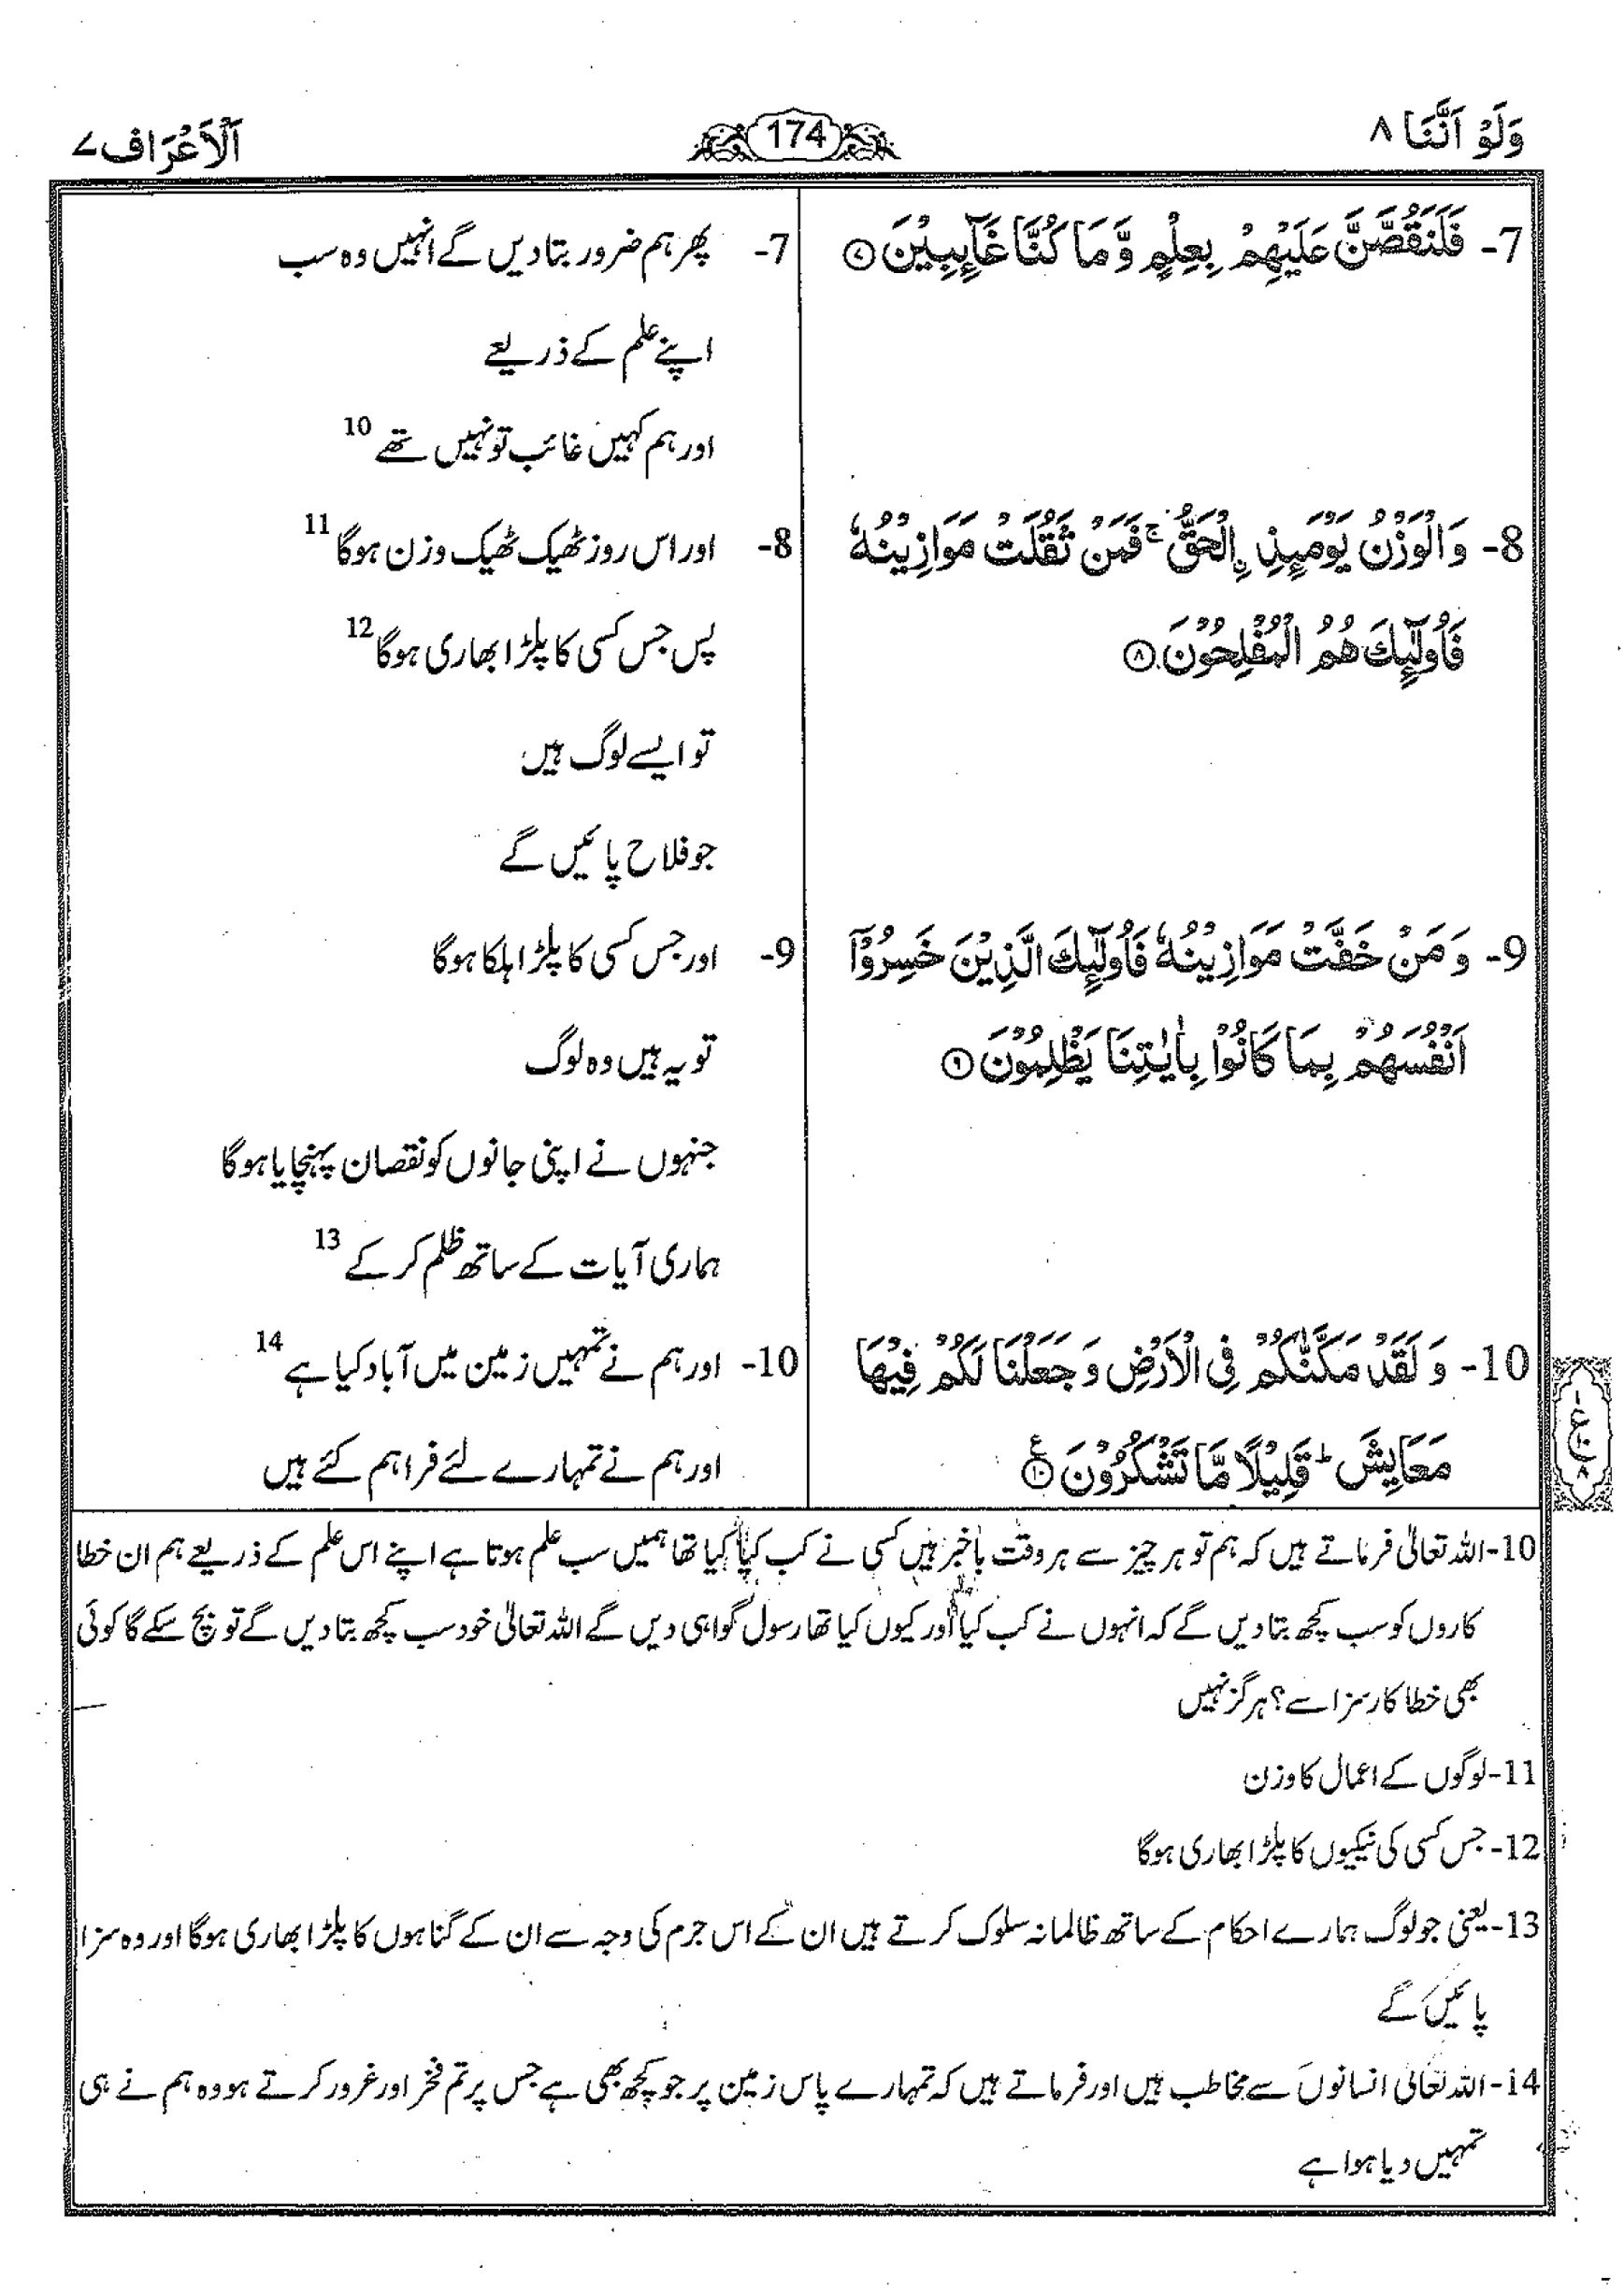 وَلَوْ اَنَّنَا ۸
174
اَلْاَعْرَاف ۷
7- فَلَنَقُصَّنَّ عَلَيْهِمْ بِعِلْمٍ وَّمَا كُنَّا غَآىِٕبِيْنَ ۷
8- وَالْوَزْنُ يَوْمَىِٕذِ ِۨالْحَقُّ ۚ فَمَنْ ثَقُلَتْ مَوَازِيْنُهٗ
فَاُولٰٓىِٕكَ هُمُ الْمُفْلِحُوْنَ ۸
9- وَمَنْ خَفَّتْ مَوَازِيْنُهٗ فَاُولٰٓىِٕكَ الَّذِيْنَ خَسِرُوْٓا
اَنْفُسَهُمْ بِمَا كَانُوْا بِاٰيٰتِنَا يَظْلِمُوْنَ ۹
10- وَلَقَدْ مَكَّنّٰكُمْ فِى الْاَرْضِ وَجَعَلْنَا لَكُمْ فِيْهَا
مَعَايِشَ ؕ قَلِيْلًا مَّا تَشْكُرُوْنَ ۱۰ ع
7- پھر ہم ضرور بتادیں گے انہیں وہ سب
اپنے علم کے ذریعے
اور ہم کہیں غائب تو نہیں تھے 10
8- اور اس روز ٹھیک ٹھیک وزن ہوگا 11
پس جس کسی کا پلڑا بھاری ہوگا 12
تو ایسے لوگ ہیں
جو فلاح پائیں گے
9- اور جس کسی کا پلڑا ہلکا ہوگا
تو یہ ہیں وہ لوگ
جنہوں نے اپنی جانوں کو نقصان پہنچایا ہوگا
ہماری آیات کے ساتھ ظلم کر کے 13
10- اور ہم نے تمہیں زمین میں آباد کیا ہے 14
اور ہم نے تمہارے لئے فراہم کئے ہیں
10- اللہ تعالیٰ فرماتے ہیں کہ ہم تو ہر چیز سے ہر وقت باخبر ہیں کسی نے کب کیا کیا تھا ہمیں سب علم ہوتا ہے اپنے اس علم کے ذریعے ہم ان خطا
کاروں کو سب کچھ بتادیں گے کہ انہوں نے کب کیا اور کیوں کیا تھا رسول گواہی دیں گے اللہ تعالیٰ خود سب کچھ بتادیں گے تو بچ سکے گا کوئی
بھی خطا کار سزا سے؟ ہرگز نہیں
11- لوگوں کے اعمال کا وزن
12- جس کسی کی نیکیوں کا پلڑا بھاری ہوگا
13- یعنی جو لوگ ہمارے احکام کے ساتھ ظالمانہ سلوک کرتے ہیں ان کے اس جرم کی وجہ سے ان کے گناہوں کا پلڑا بھاری ہوگا اور وہ سزا
پائیں گے
14- اللہ تعالیٰ انسانوں سے مخاطب ہیں اور فرماتے ہیں کہ تمہارے پاس زمین پر جو کچھ بھی ہے جس پر تم فخر اور غرور کرتے ہو وہ ہم نے ہی
تمہیں دیا ہوا ہے